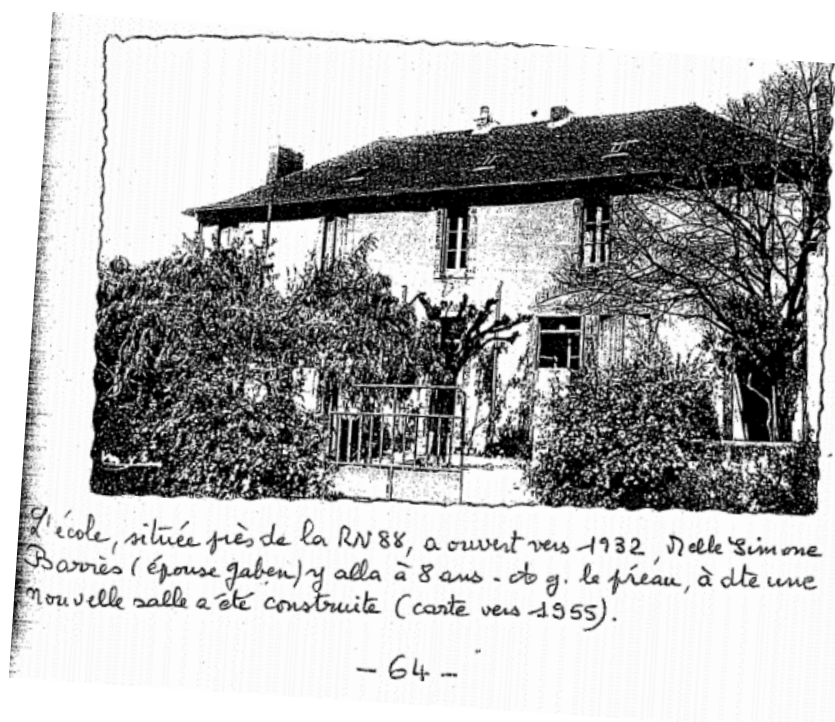 L'école, située près de la RN 88, a ouvert vers 1932, Melle Simone
Barrès (épouse Gaben) y alla à 8 ans - à g. le préau, à dte une
nouvelle salle a été construite (carte vers 1955).
- 64 -